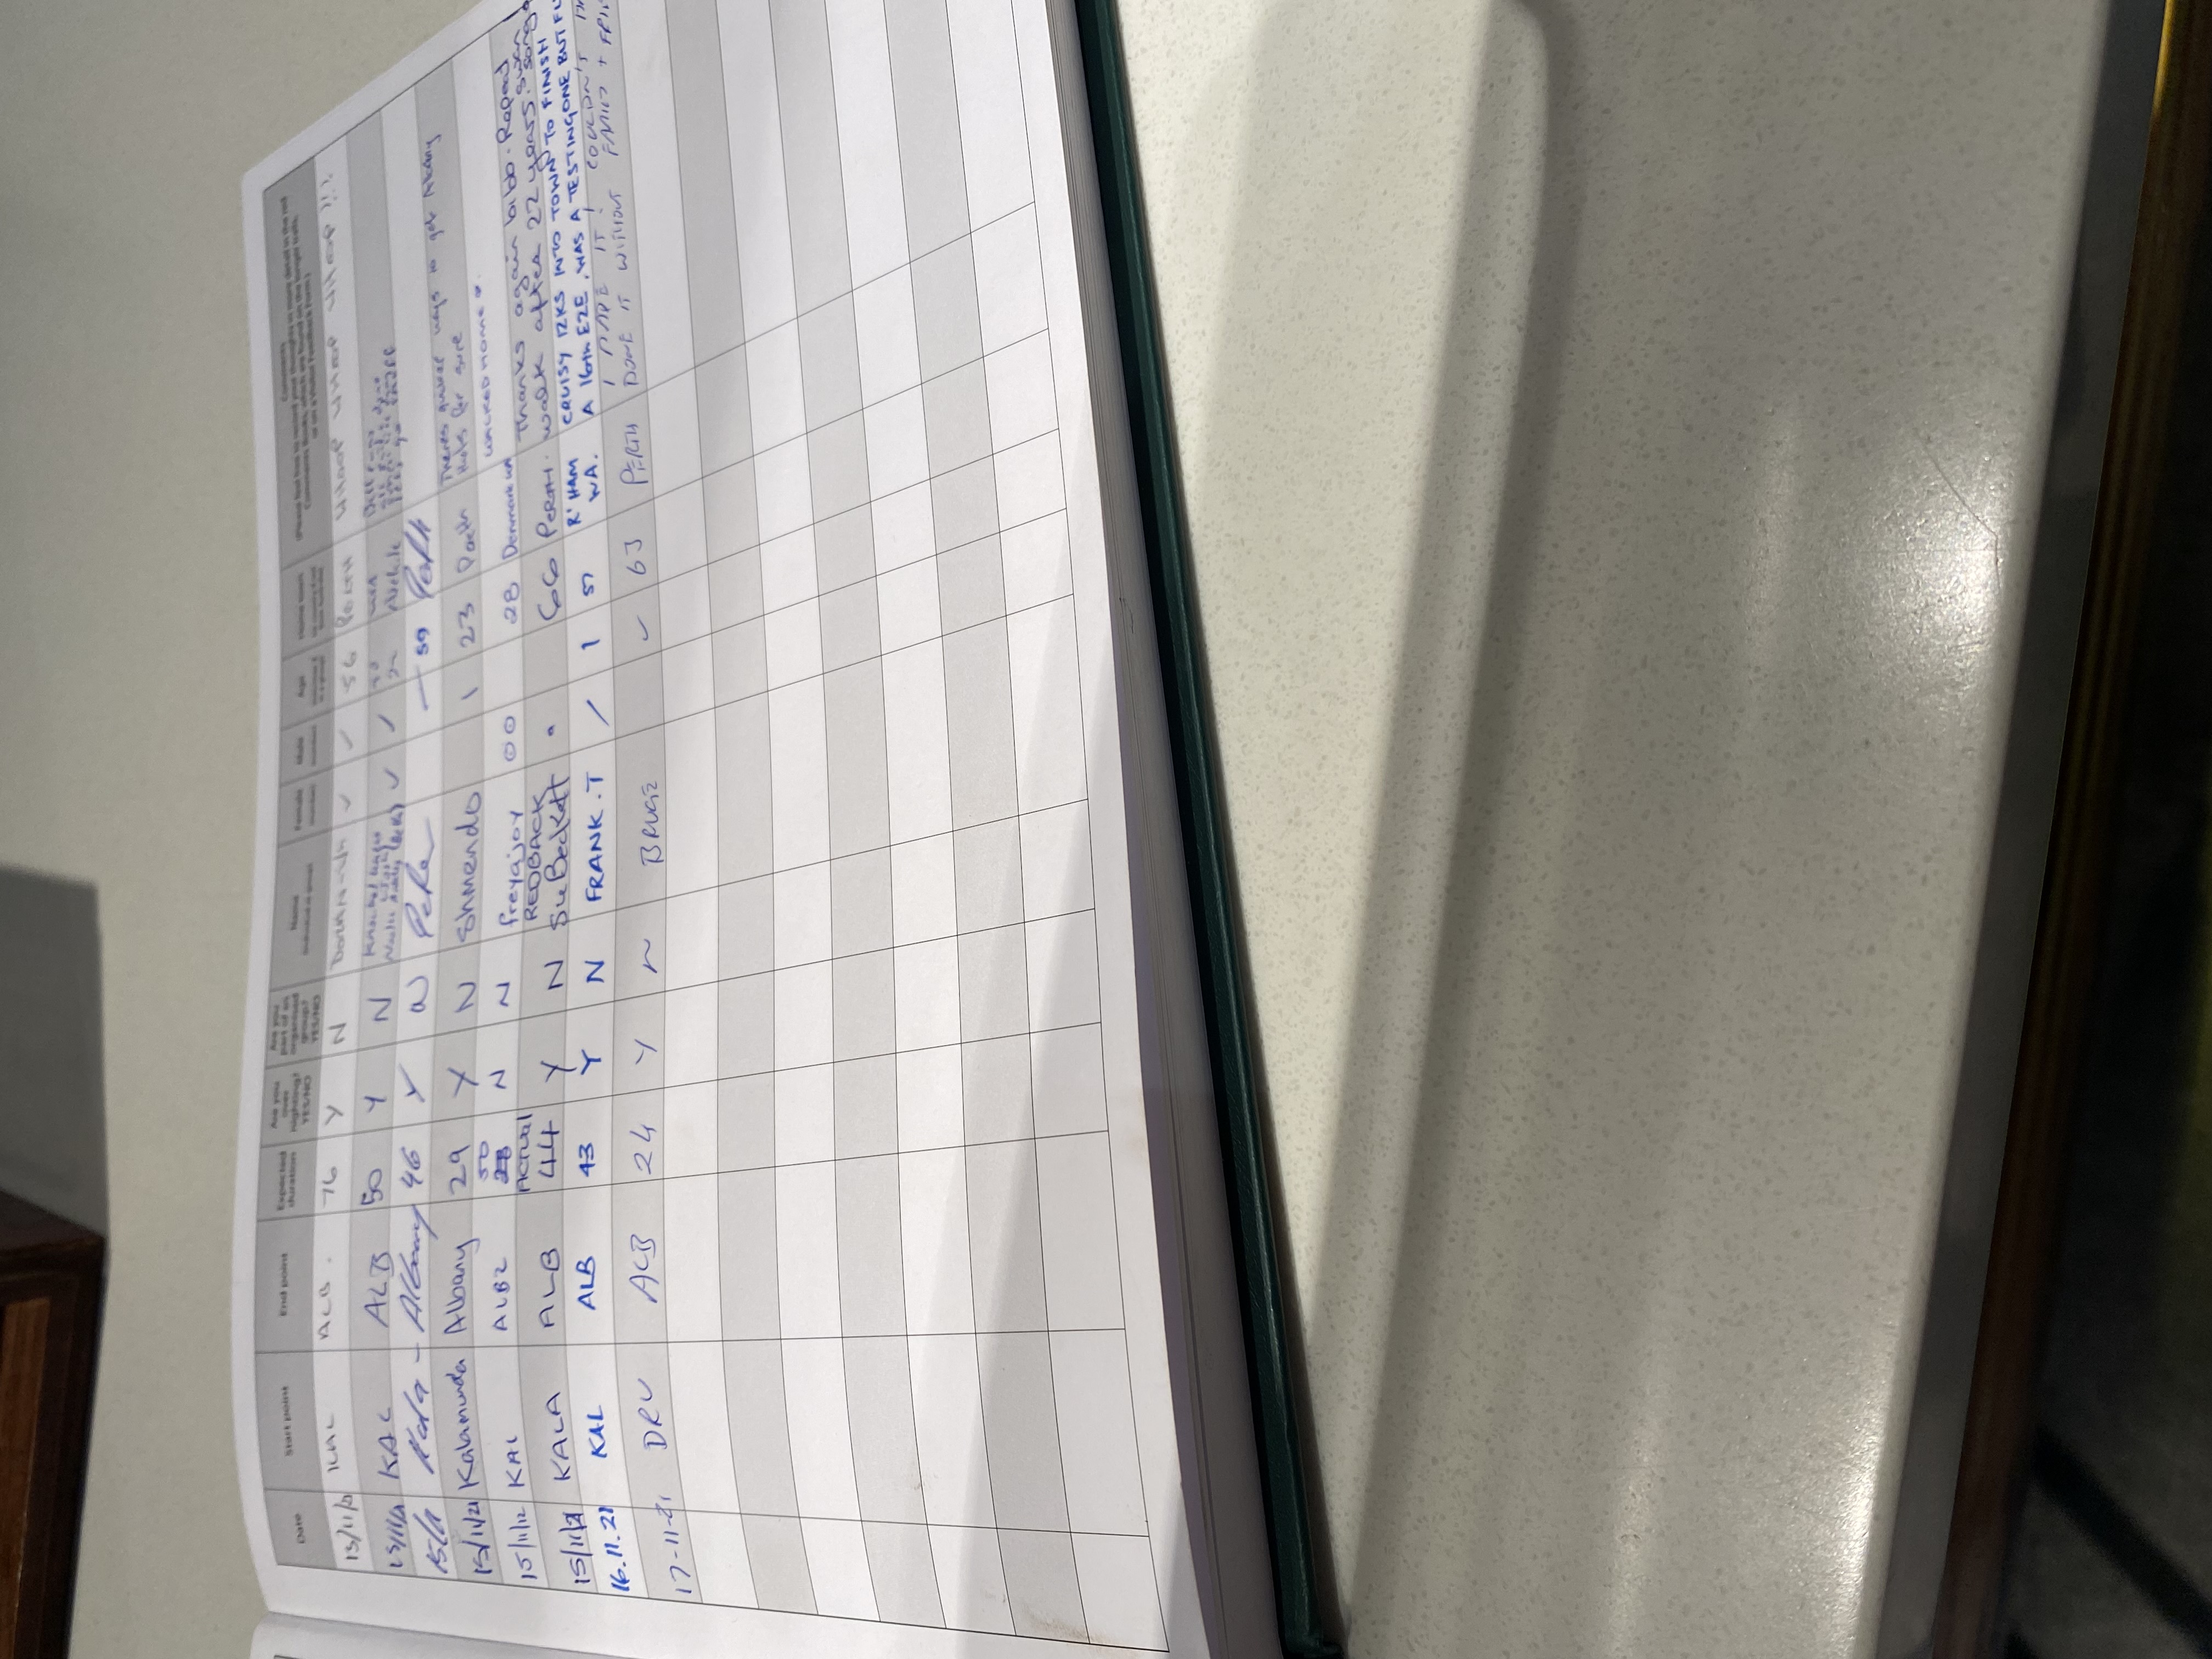 Date Start point End point Expected duration Are you over nighting? YES/NO Are you part of an organised group? YES/NO Name Female Male Age Home town Comments
(Please feel free to record your thoughts in more detail in the red
Comments Books, which are found on the longer trails,
or on a Visitor Feedback Form.)
KAL ALB. 76 Y N 56 PERTH WHOOP WHOOP WHOOP !!!
KAL ALB 50 Y N
Kala - Albany 46 Y N Peter 59 Perth
15/11/21 Kalamunda Albany 29 Y N Shmendo 1 23 Perth Theres quicker ways to get Albany
thats for sure
15/11/12 KAL 50 N N freyajoy 00 28 Denmark WA WALKED HOME
ACTUAL REDBACK Thanks again bibb. Repeat
15/11/21 KALA ALB 44 Y N Su Beckett 66 PERTH. walk after 22 years. swan song
16.11.21 KAL ALB 43 Y N FRANK.T / 1 57 R'HAM WA. CRUISY 12KS INTO TOWN TO FINISH
A 16th E2E. WAS A TESTING ONE BUT
17-11-21 ALB 24 Y N BRUCE 63 PERTH I MADE IT! COULDN'T
DONE IT WITHOUT FAMILY +